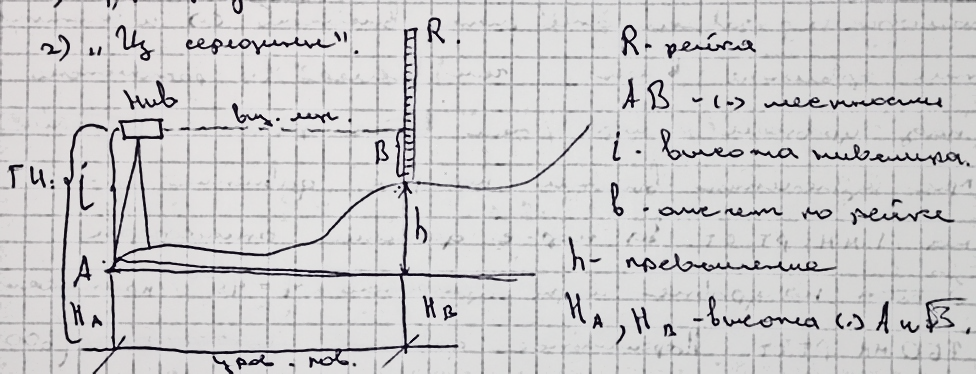 2) „Из середины".
R.
R - рейка
Нив
виз. лин.
AB - (·) местности
B
ГИ:
i
i - высота нивелира.
в - отсчет по рейке
h
A
h - превышение
H_A
H_B
H_A, H_B - высота (·) A и B.
уров. пов.